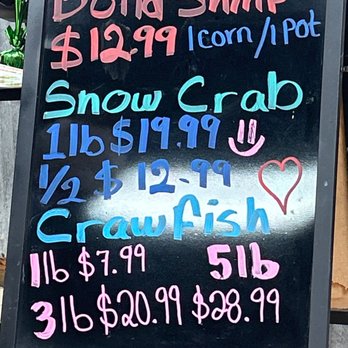 $12.99 1corn/1pot
Snow Crab
1lb $19.99
1/2 $12.99
Crawfish
1lb $7.99 5lb
3lb $20.99 $28.99